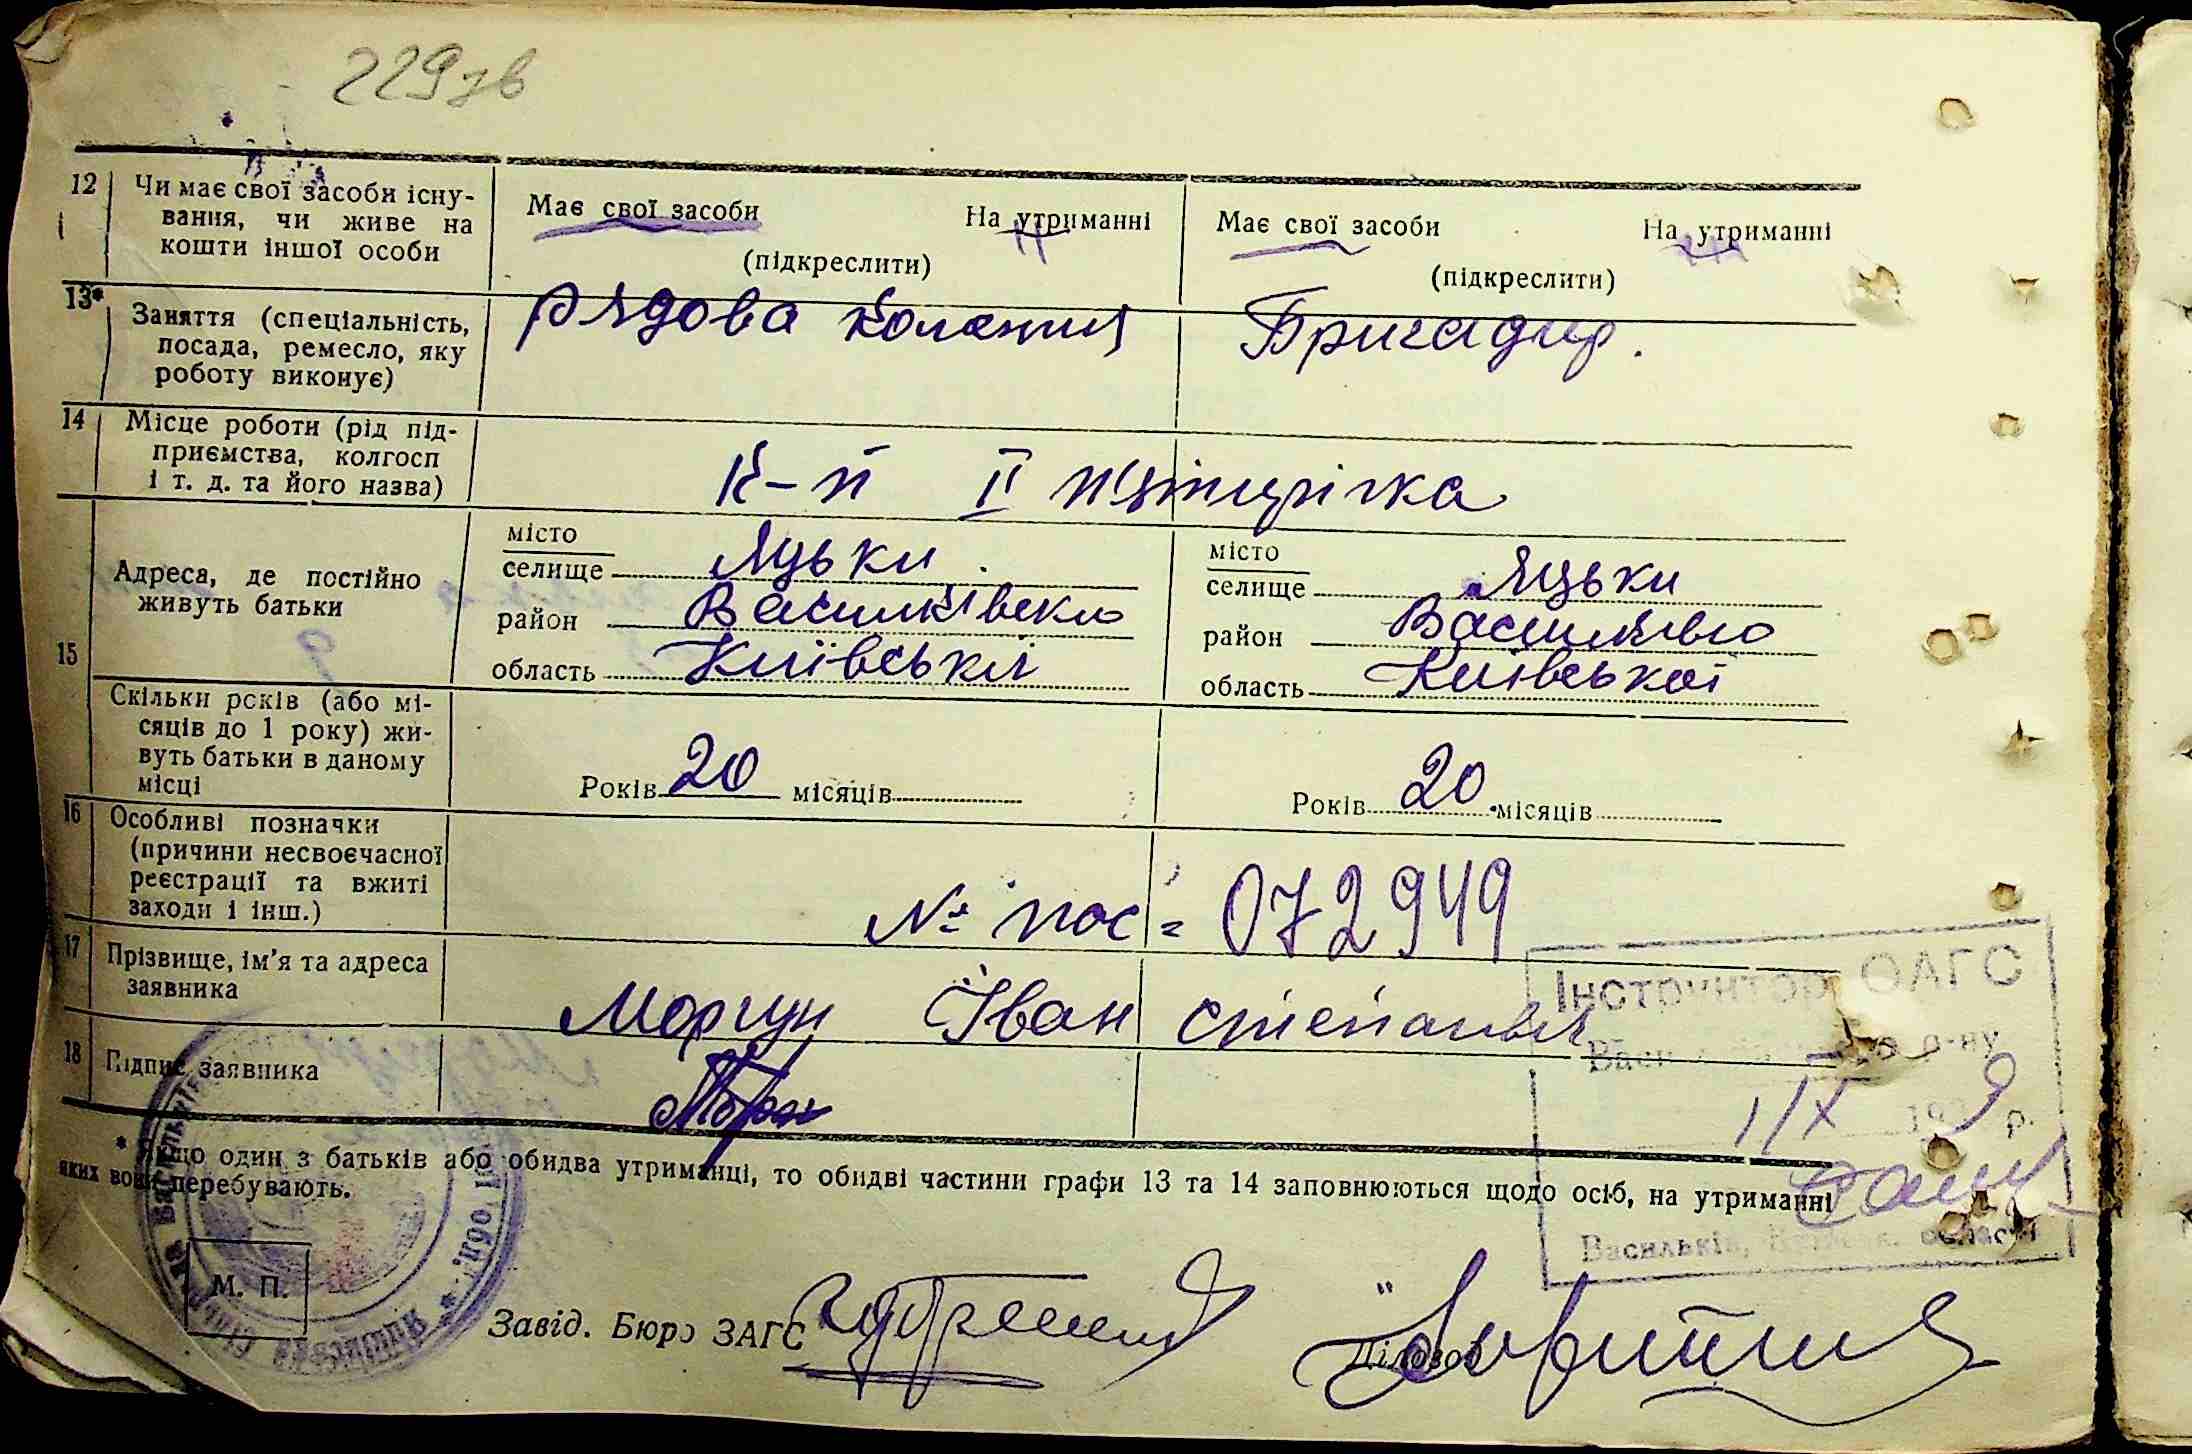 229зв
12 Чи має свої засоби існу-
вання, чи живе на
кошти іншої особи
Має свої засоби На утриманні
(підкреслити)
Має свої засоби На утриманні
(підкреслити)
13* Заняття (спеціальність,
посада, ремесло, яку
роботу виконує)
Рядова
Бригадир.
14 Місце роботи (рід під-
приємства, колгосп
і т. д. та його назва)
К-п ІІ пятирічка
15
Адреса, де постійно
живуть батьки
місто
селище Яцьки
район
область Київської
місто
селище Яцьки
район
область Київської
Скільки років (або мі-
сяців до 1 року) жи-
вуть батьки в даному
місці
Років 20 місяців
Років 20 місяців
16 Особливі позначки
(причини несвоєчасної
реєстрації та вжиті
заходи і інш.)
№ пос = 072949
17 Прізвище, ім'я та адреса
заявника
Моргун Іван
18 Підпис заявника
* Якщо один з батьків або обидва утриманці, то обидві частини графи 13 та 14 заповнюються щодо осіб, на утриманні
яких вони перебувають.
Інструктор ОАГС
р-ну
1/IX 193 9 р.
Васильків, області
М. П.
Завід. Бюро ЗАГС
Діловод